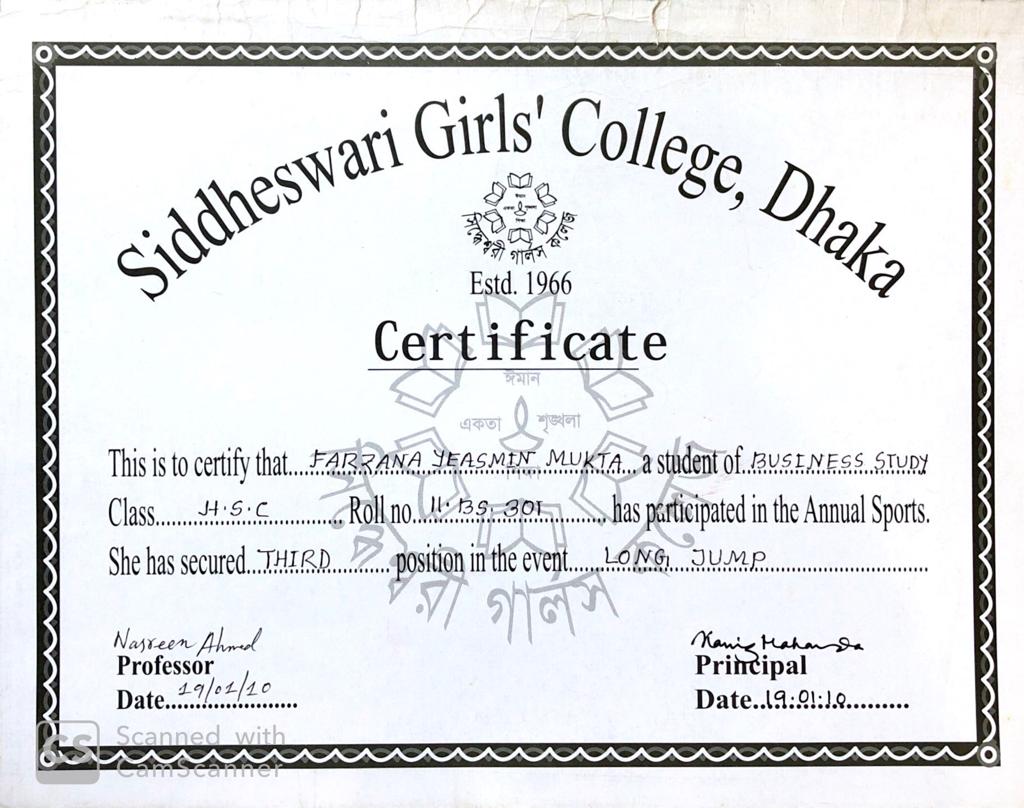 Siddheswari Girls' College, Dhaka
ঈমান
একতা শৃঙ্খলা
শিক্ষা
সিদ্ধেশ্বরী গার্লস কলেজ
Estd. 1966
Certificate
ঈমান
একতা শৃঙ্খলা
শিক্ষা
সিদ্ধেশ্বরী গার্লস কলেজ
This is to certify that....FARZANA YEASMIN MUKTA...a student of.BUSINESS STUDY
Class.....H.S.C............Roll no..11.BS.301..........has participated in the Annual Sports.
She has secured..THIRD..........position in the event......LONG JUMP..........................
Nasreen Ahmed
Professor
Date..19/01/10.....
Principal
Date..19:01:10..........
CS Scanned with
CamScanner